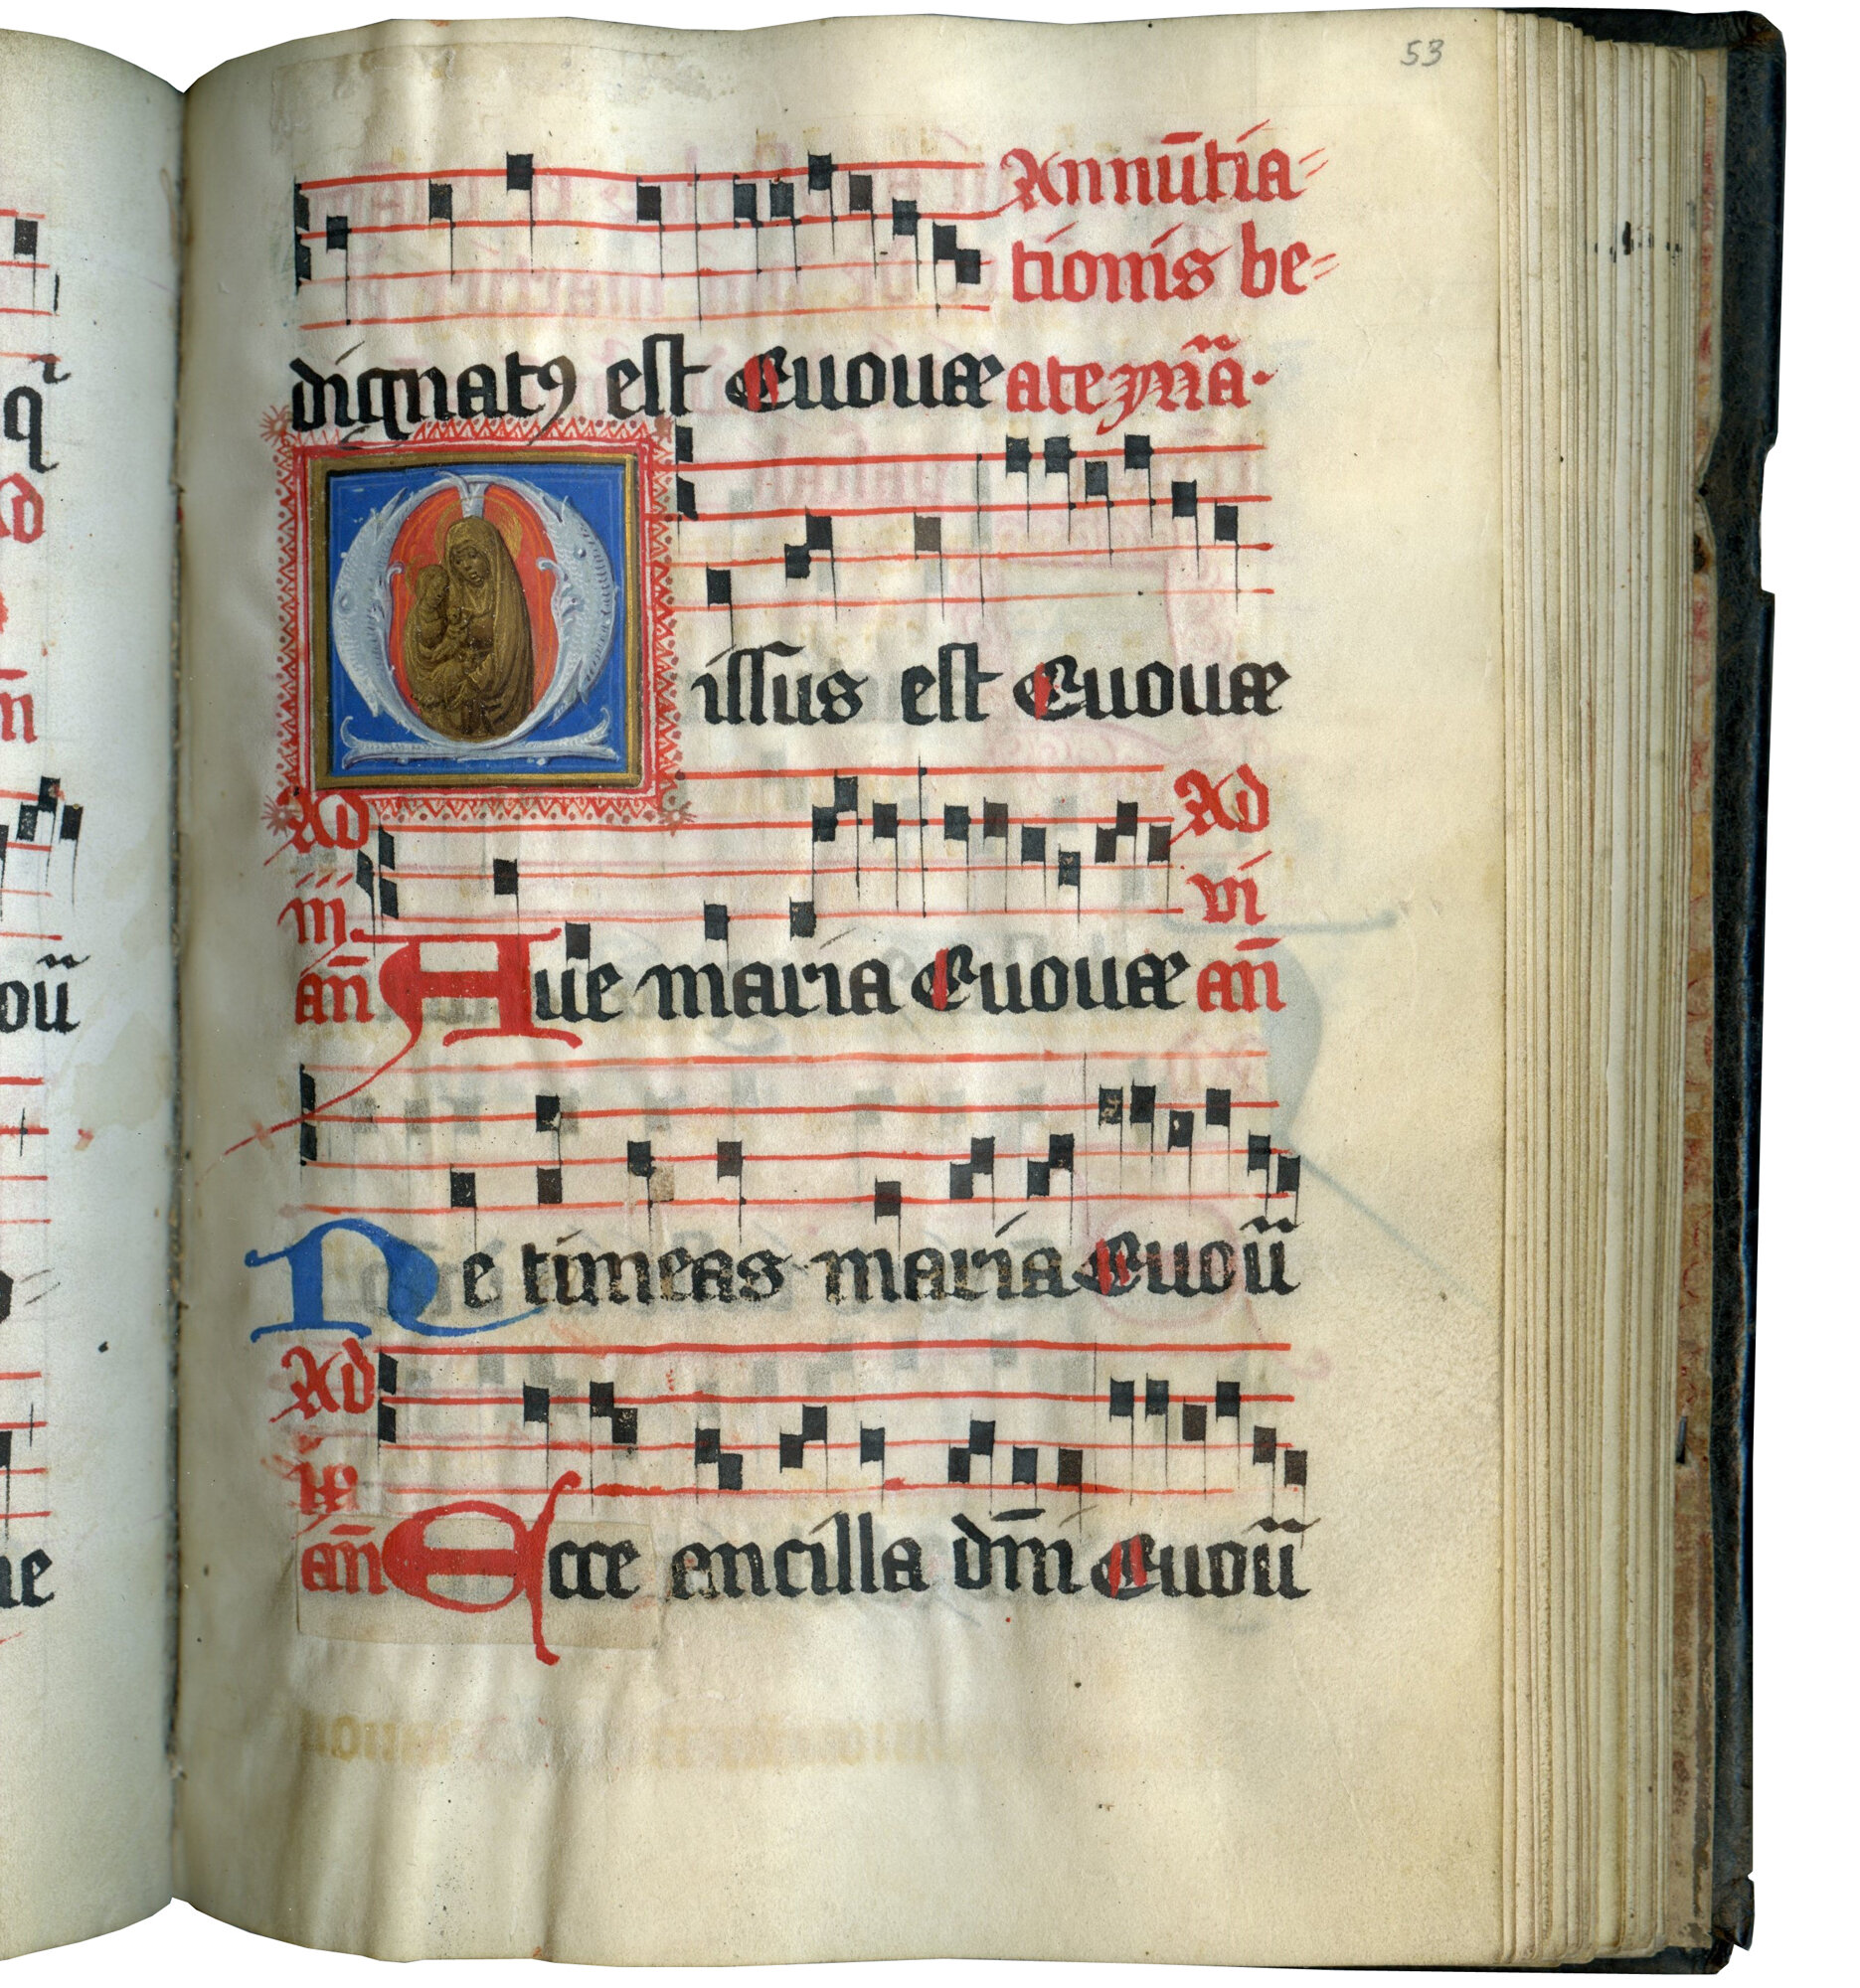 53
Annūtia-
tionis be-
dignatꝯ est Euouae ate mr̄ıe.
Missus est Euouae
Ad
iii
Ad
vi
an̄ Aue maria Euouae an̄
Ne timeas maria Euoū
Ad
ix
an̄ Ecce ancilla dn̄i Euoū